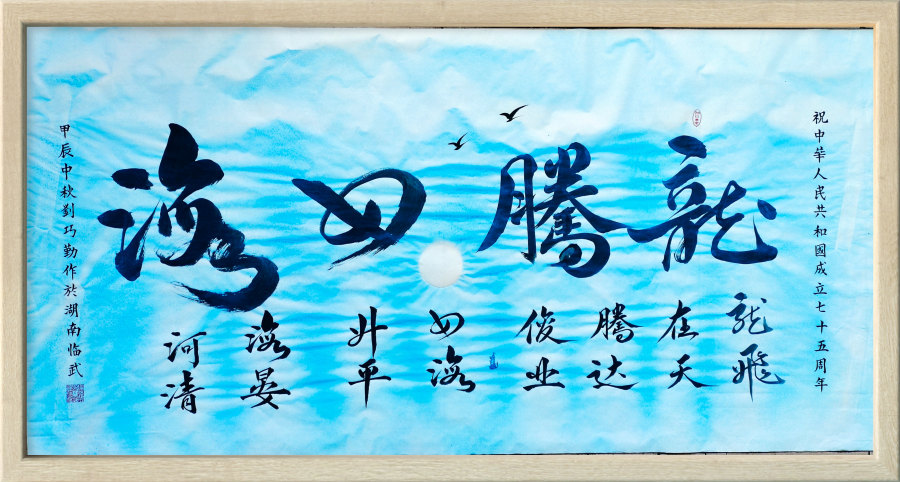 祝中华人民共和國成立七十五周年
龍騰四海
龍飛
在天
騰达
俊业
四海
升平
海晏
河清
甲辰中秋劉巧勤作於湖南临武